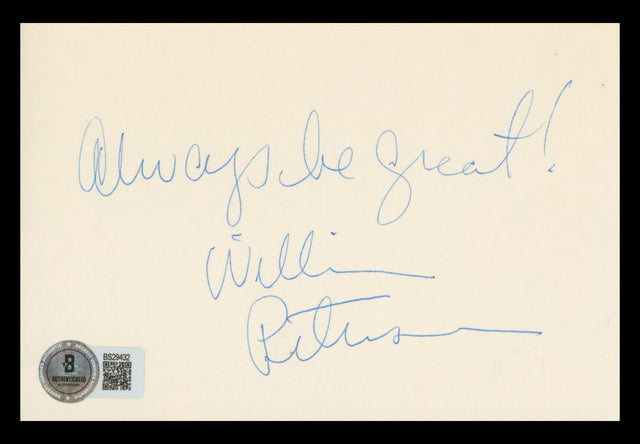 Always be great!
William
Peterson
B
AUTHENTICATED
BS29432